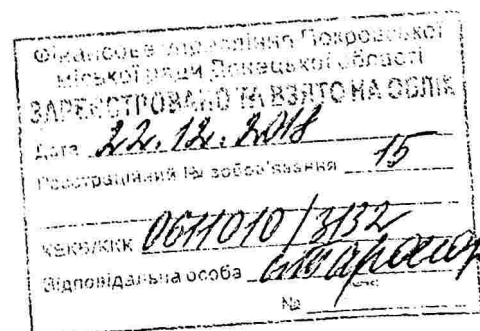 Фінансове управління Покровської
міської ради Донецької області
ЗАРЕЄСТРОВАНО ТА ВЗЯТО НА ОБЛІК
Дата 22.12.2018
Реєстраційний № зобов'язання 15
КВКВ/ККК 0611010/3132
Відповідальна особа
№